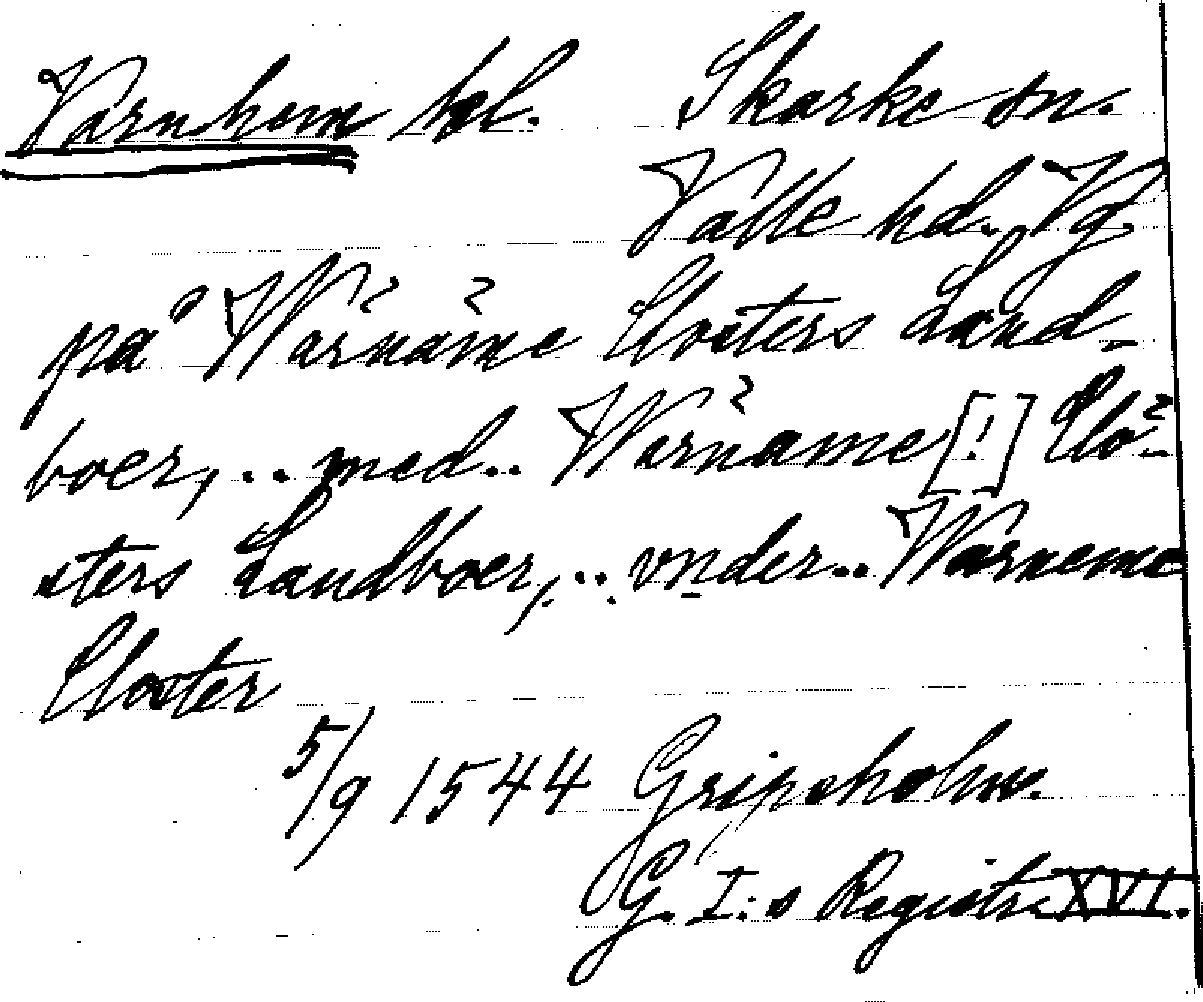 Varnhem kl. Skarke sn.
Valle hd. Vg.
på Warname Closters Land-
boer,.. med.. Warname [!] Clo-
sters Landboer,.. vnder.. Warneme
Closter
5/9 1544 Gripsholm.
G. I:s Registr. XVI.